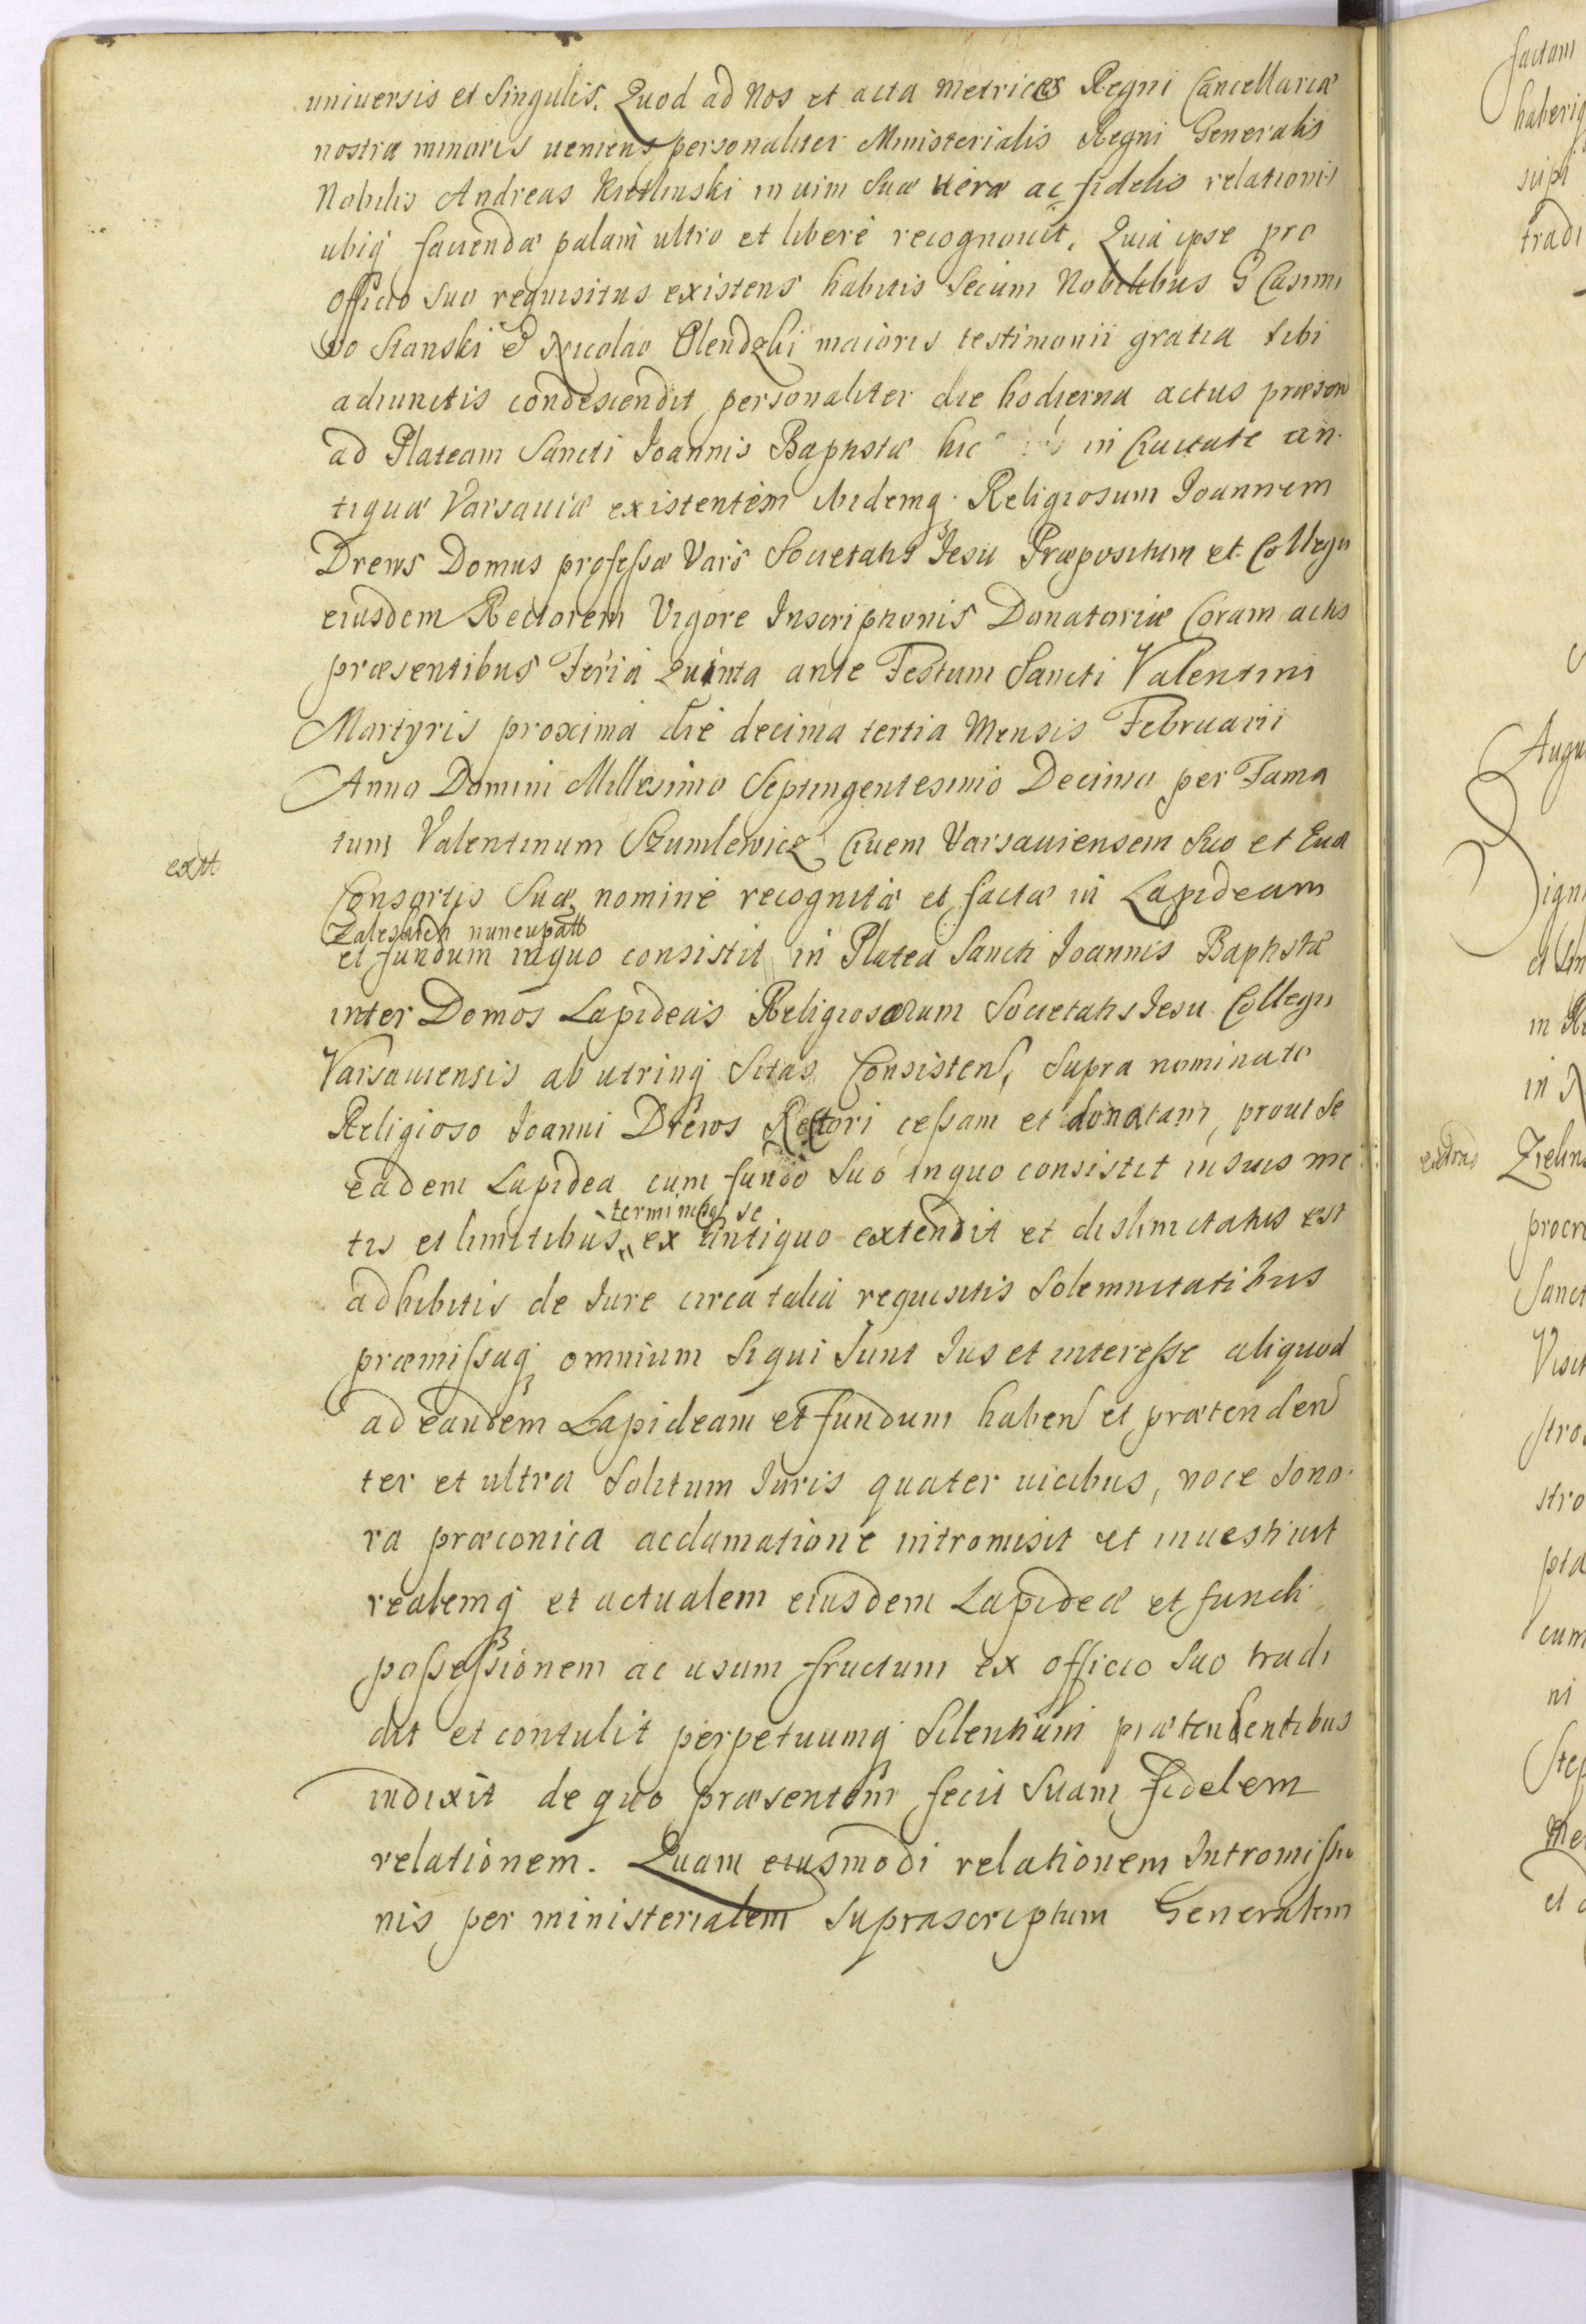 universis et Singulis. Quod ad Nos et acta Metrices Regni Cancellariæ
nostræ minoris ueniens personaliter Ministerialis Regni Generalis
Nobilis Andreas in uim Suæ Veræ ac fidelis relationis
ubiq faciendæ palam ultro et liberè recognouit. Quia ipse pro
Officio Suo requisitus existens habitis Secum Nobilibus G Casimi
ro Stanski & Nicolao Olendzki maioris testimonii gratia Sibi
adiunctis condescendit personaliter die hodierna actus præsen
ad Plateam Sancti Joannis Baptistæ hic in Ciuitate an
tiquæ Varsauiæ existentem ibidemq Religiosum Joannem
Drews Domus professæ Vars Societatis Jesu Præpositum et Collegii
eiusdem Rectorem Vigore Inscriptionis Donatoriæ Coram actis
præsentibus Feria Quinta ante Festum Sancti Valentini
Martyris proxima die decima tertia Mensis Februarii
Anno Domini Millesimo Septingentesimo Decimo per Fama
tum Valentinum Szumlewicz Ciuem Varsauiensem Suo et Euæ
Consortis Suæ nomine recognitæ et factæ in Lapideam
nuncupatt
et fundum inquo consistit in Platea Sancti Joannis Baptistæ
inter Domos Lapideas Religiosorum Societatis Jesu Collegii
Varsauiensis ab utrinq Sitas Consisten, Supra nominato
Religioso Joanni Drews Rectori cessam et donatam, prout Se
eadem Lapidea cum fundo Suo inquo consistit insuis me
terminisq se
tis et limitibus ex antiquo extendit et dislimitatus est
adhibitis de Jure circa talia requisitis Solemnitatibus
præmissaq omnium Siqui Sunt Jus et interesse aliquod
ad eandem Lapideam et fundum haben et prætenden
ter et ultra Solitum Juris quater uicibus, uoce Sono
ra præconica acclamatione intromisit et inuestiuit
realemq et actualem eiusdem Lapideæ et fundi
possessionem ac usum fructum ex officio Suo tradi
dit et contulit perpetuumq Silentium prætendentibus
indixit de quo præsentem fecit Suam fidelem
relationem. Quam eiusmodi relationem Intromissio
nis per ministerialem Suprascriptum Generalem